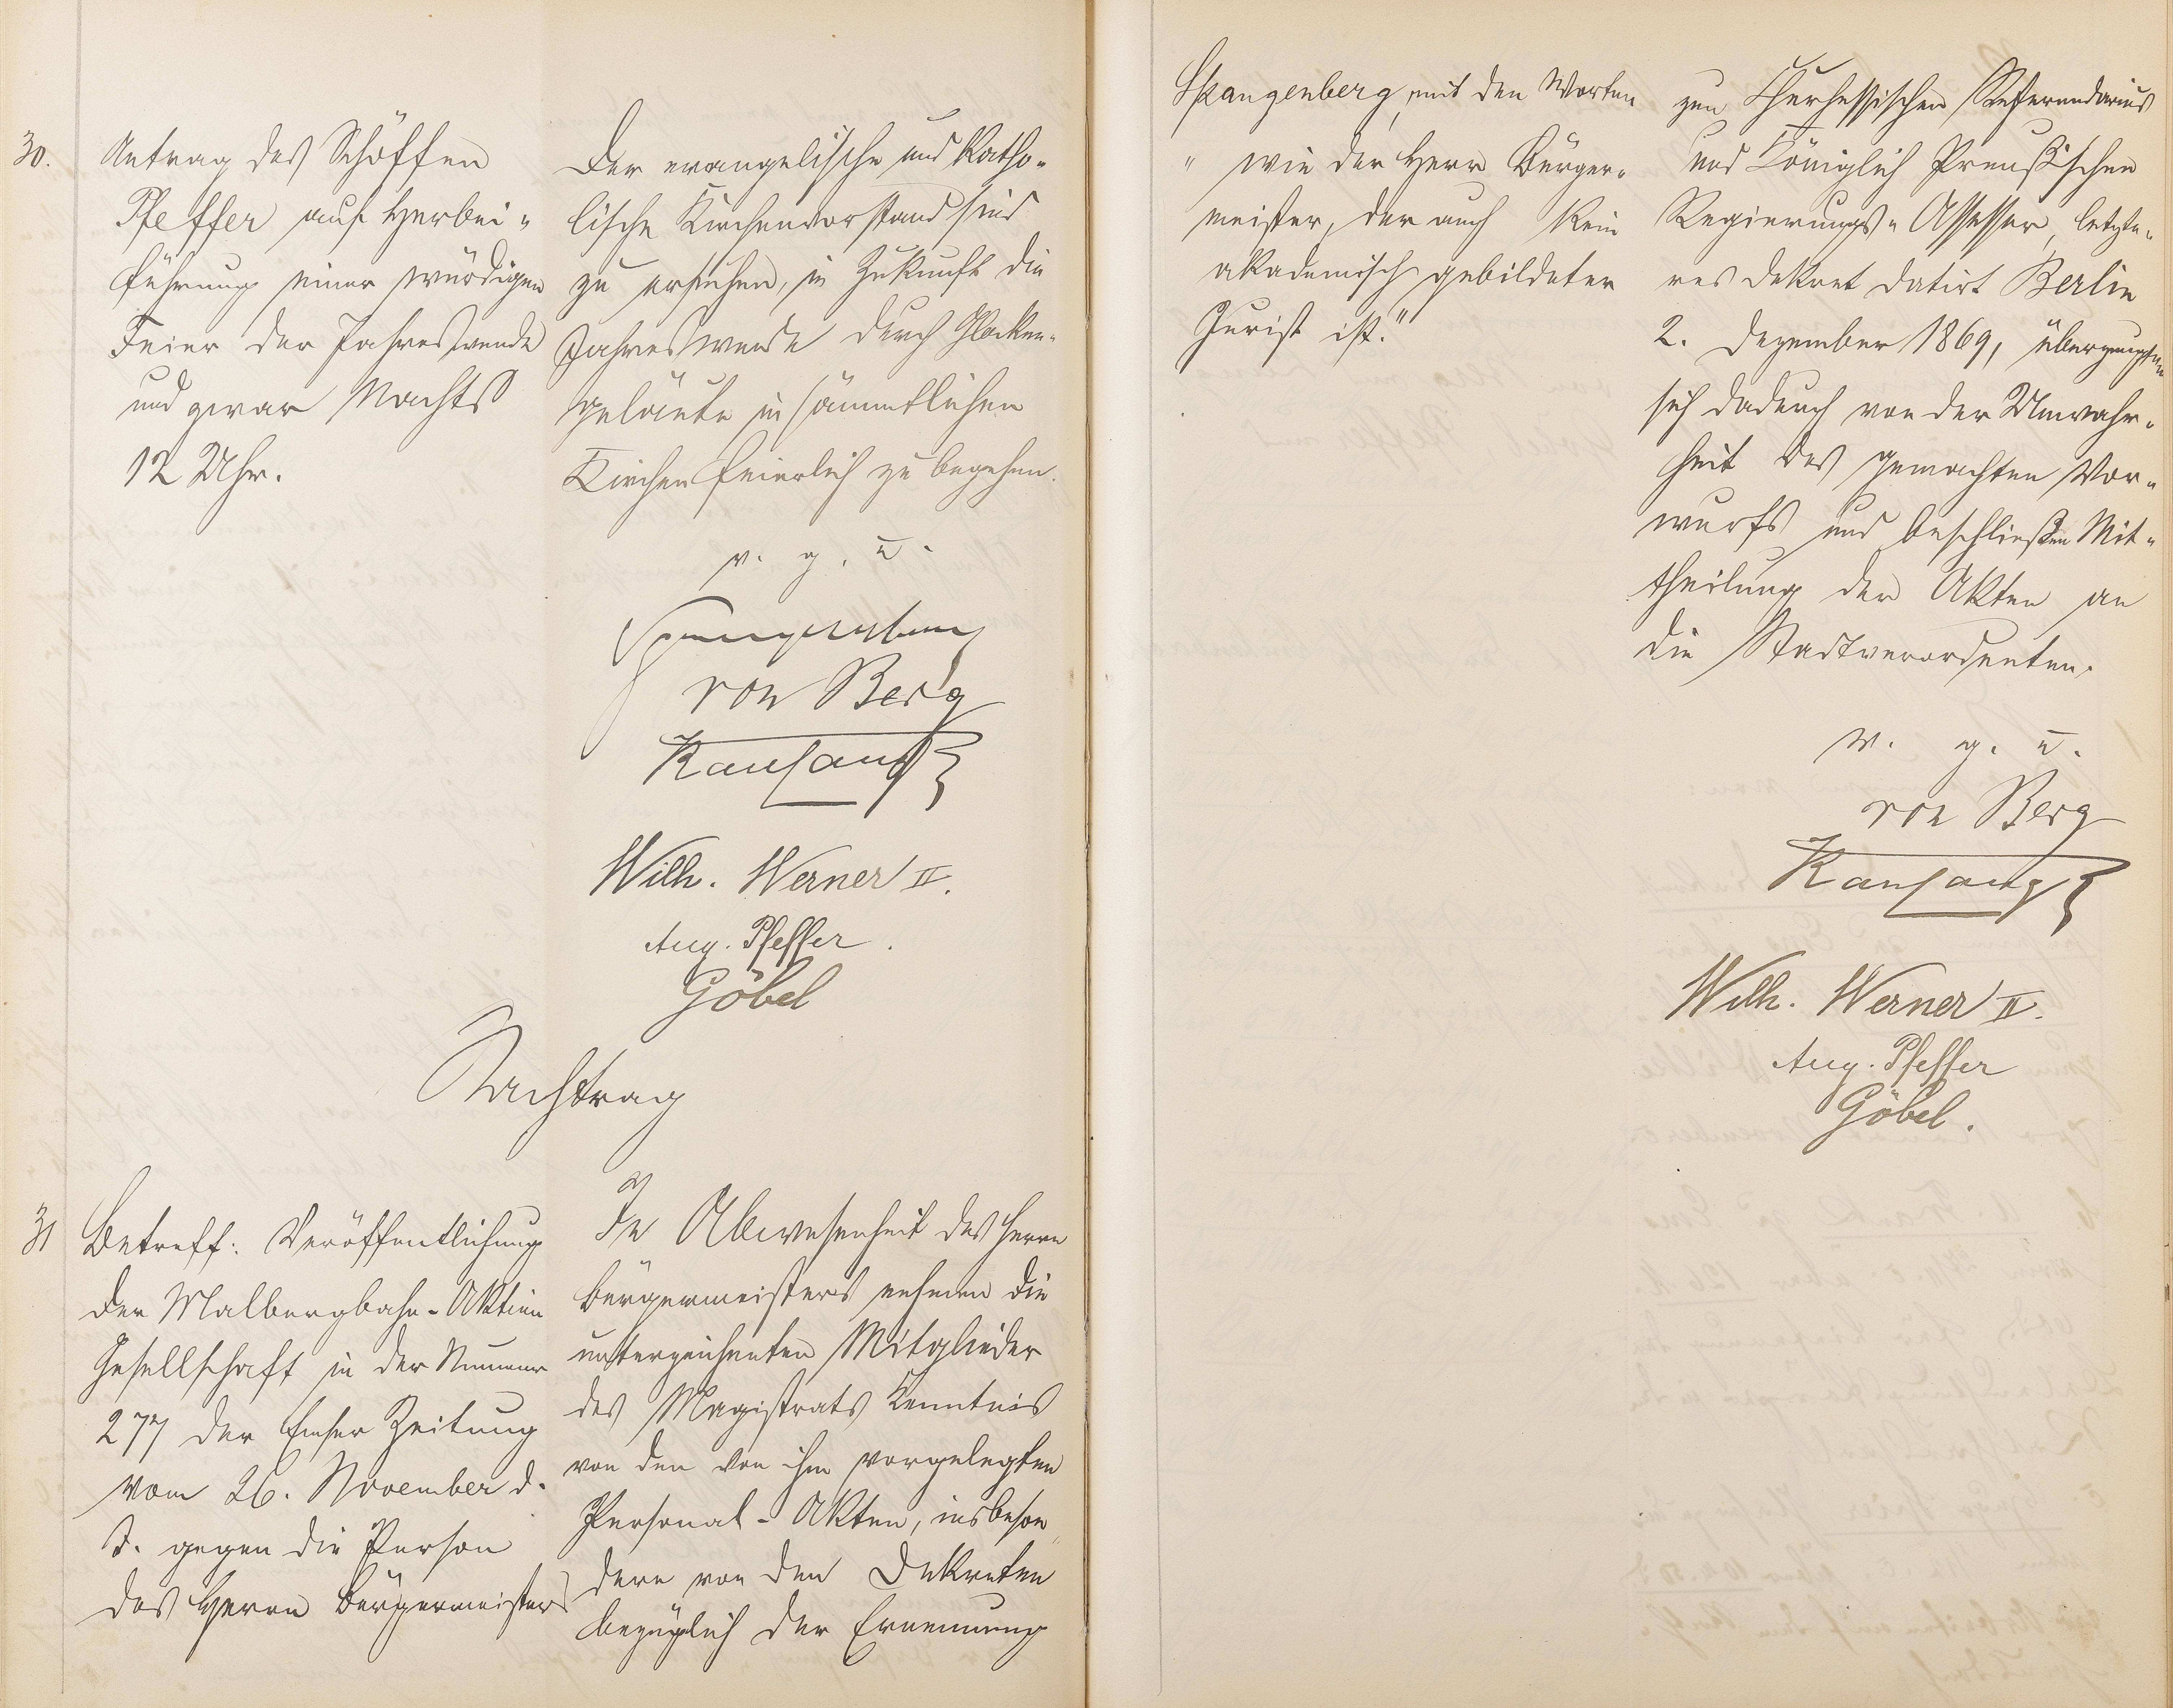 30.
Antrag des Schöffen
Pfeffer auf Herbei-
führung einer würdigen
Feier der Jahreswende
und zwar Nachts
12 Uhr.
Der evangelische und katho-
lische Kirchenvorstand sind
zu ersuchen, in Zukunft die
Jahreswende durch Glocken-
geläute in sämmtlichen
Kirchen feierlich zu begehen.
v. g. u.
Spangenberg
von Berg
Wilh. Werner II.
Aug. Pfeffer.
Göbel
Nachtrag
31
Betreff: Veröffentlichung
der Malbergbahn-Aktien
Gesellschaft in der Nummer
277 der Emser Zeitung
vom 26. November d.
J. gegen die Person
des Herrn Bürgermeisters
a)
In Abwesenheit des Herrn
Bürgermeisters nehmen die
unterzeichneten Mitglieder
des Magistrats Kenntnis
von den von ihm vorgelegten
Personal-Akten, insbeson
dere von den Dekreten
bezüglich der Ernennung
Spangenberg, mit den Worten
" wie der Herr Bürger-
meister, der auch kein
akademisch gebildeter
Jurist ist."
zum Churhessischen Referendarius
und Königlich Preußischen
Regierungs-Assessor, letzte-
res Dekret datirt Berlin
2. Dezember 1869, überzeugten
sich dadurch von der Unwahr-
heit des gemachten Vor-
wurfs und beschließen Mit-
theilung der Akten an
die Stadtverordneten.
v. g. u.
von Berg
Wilh. Werner II.
Aug. Pfeffer
Göbel.